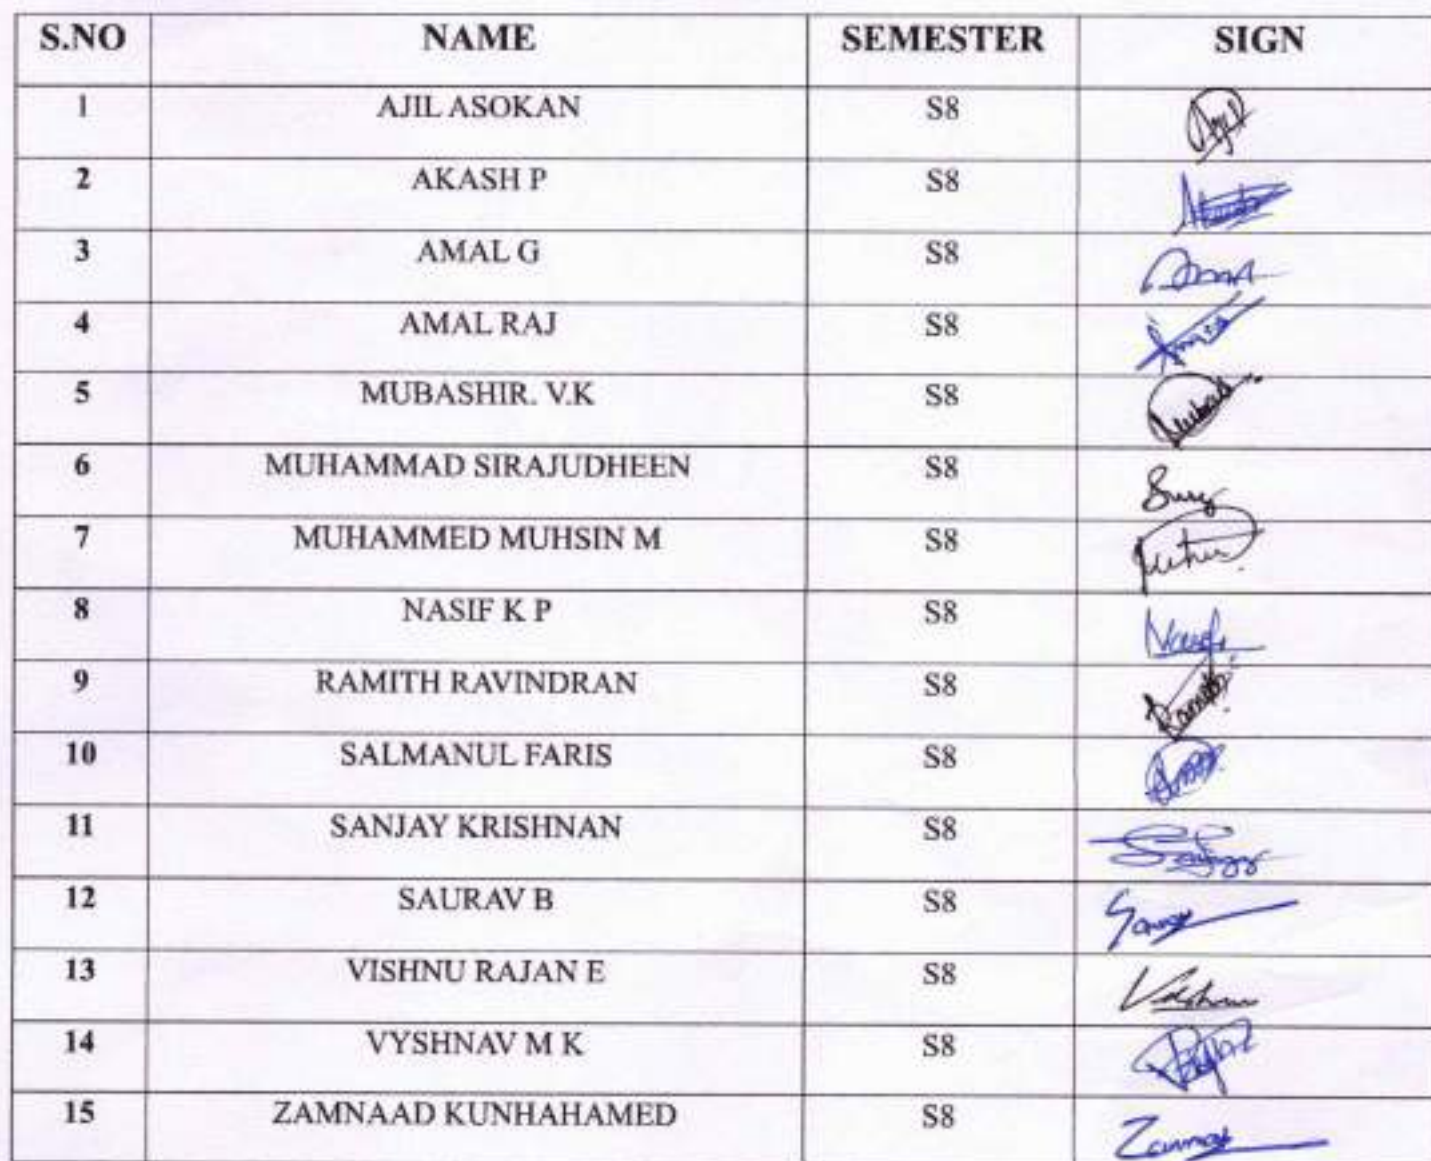 S.NO NAME SEMESTER SIGN
1 AJIL ASOKAN S8 Ajil
2 AKASH P S8
3 AMAL G S8
4 AMAL RAJ S8
5 MUBASHIR. V.K S8 Mubash
6 MUHAMMAD SIRAJUDHEEN S8
7 MUHAMMED MUHSIN M S8
8 NASIF K P S8
9 RAMITH RAVINDRAN S8 Ramith
10 SALMANUL FARIS S8
11 SANJAY KRISHNAN S8
12 SAURAV B S8
13 VISHNU RAJAN E S8 Vishnu
14 VYSHNAV M K S8
15 ZAMNAAD KUNHAHAMED S8